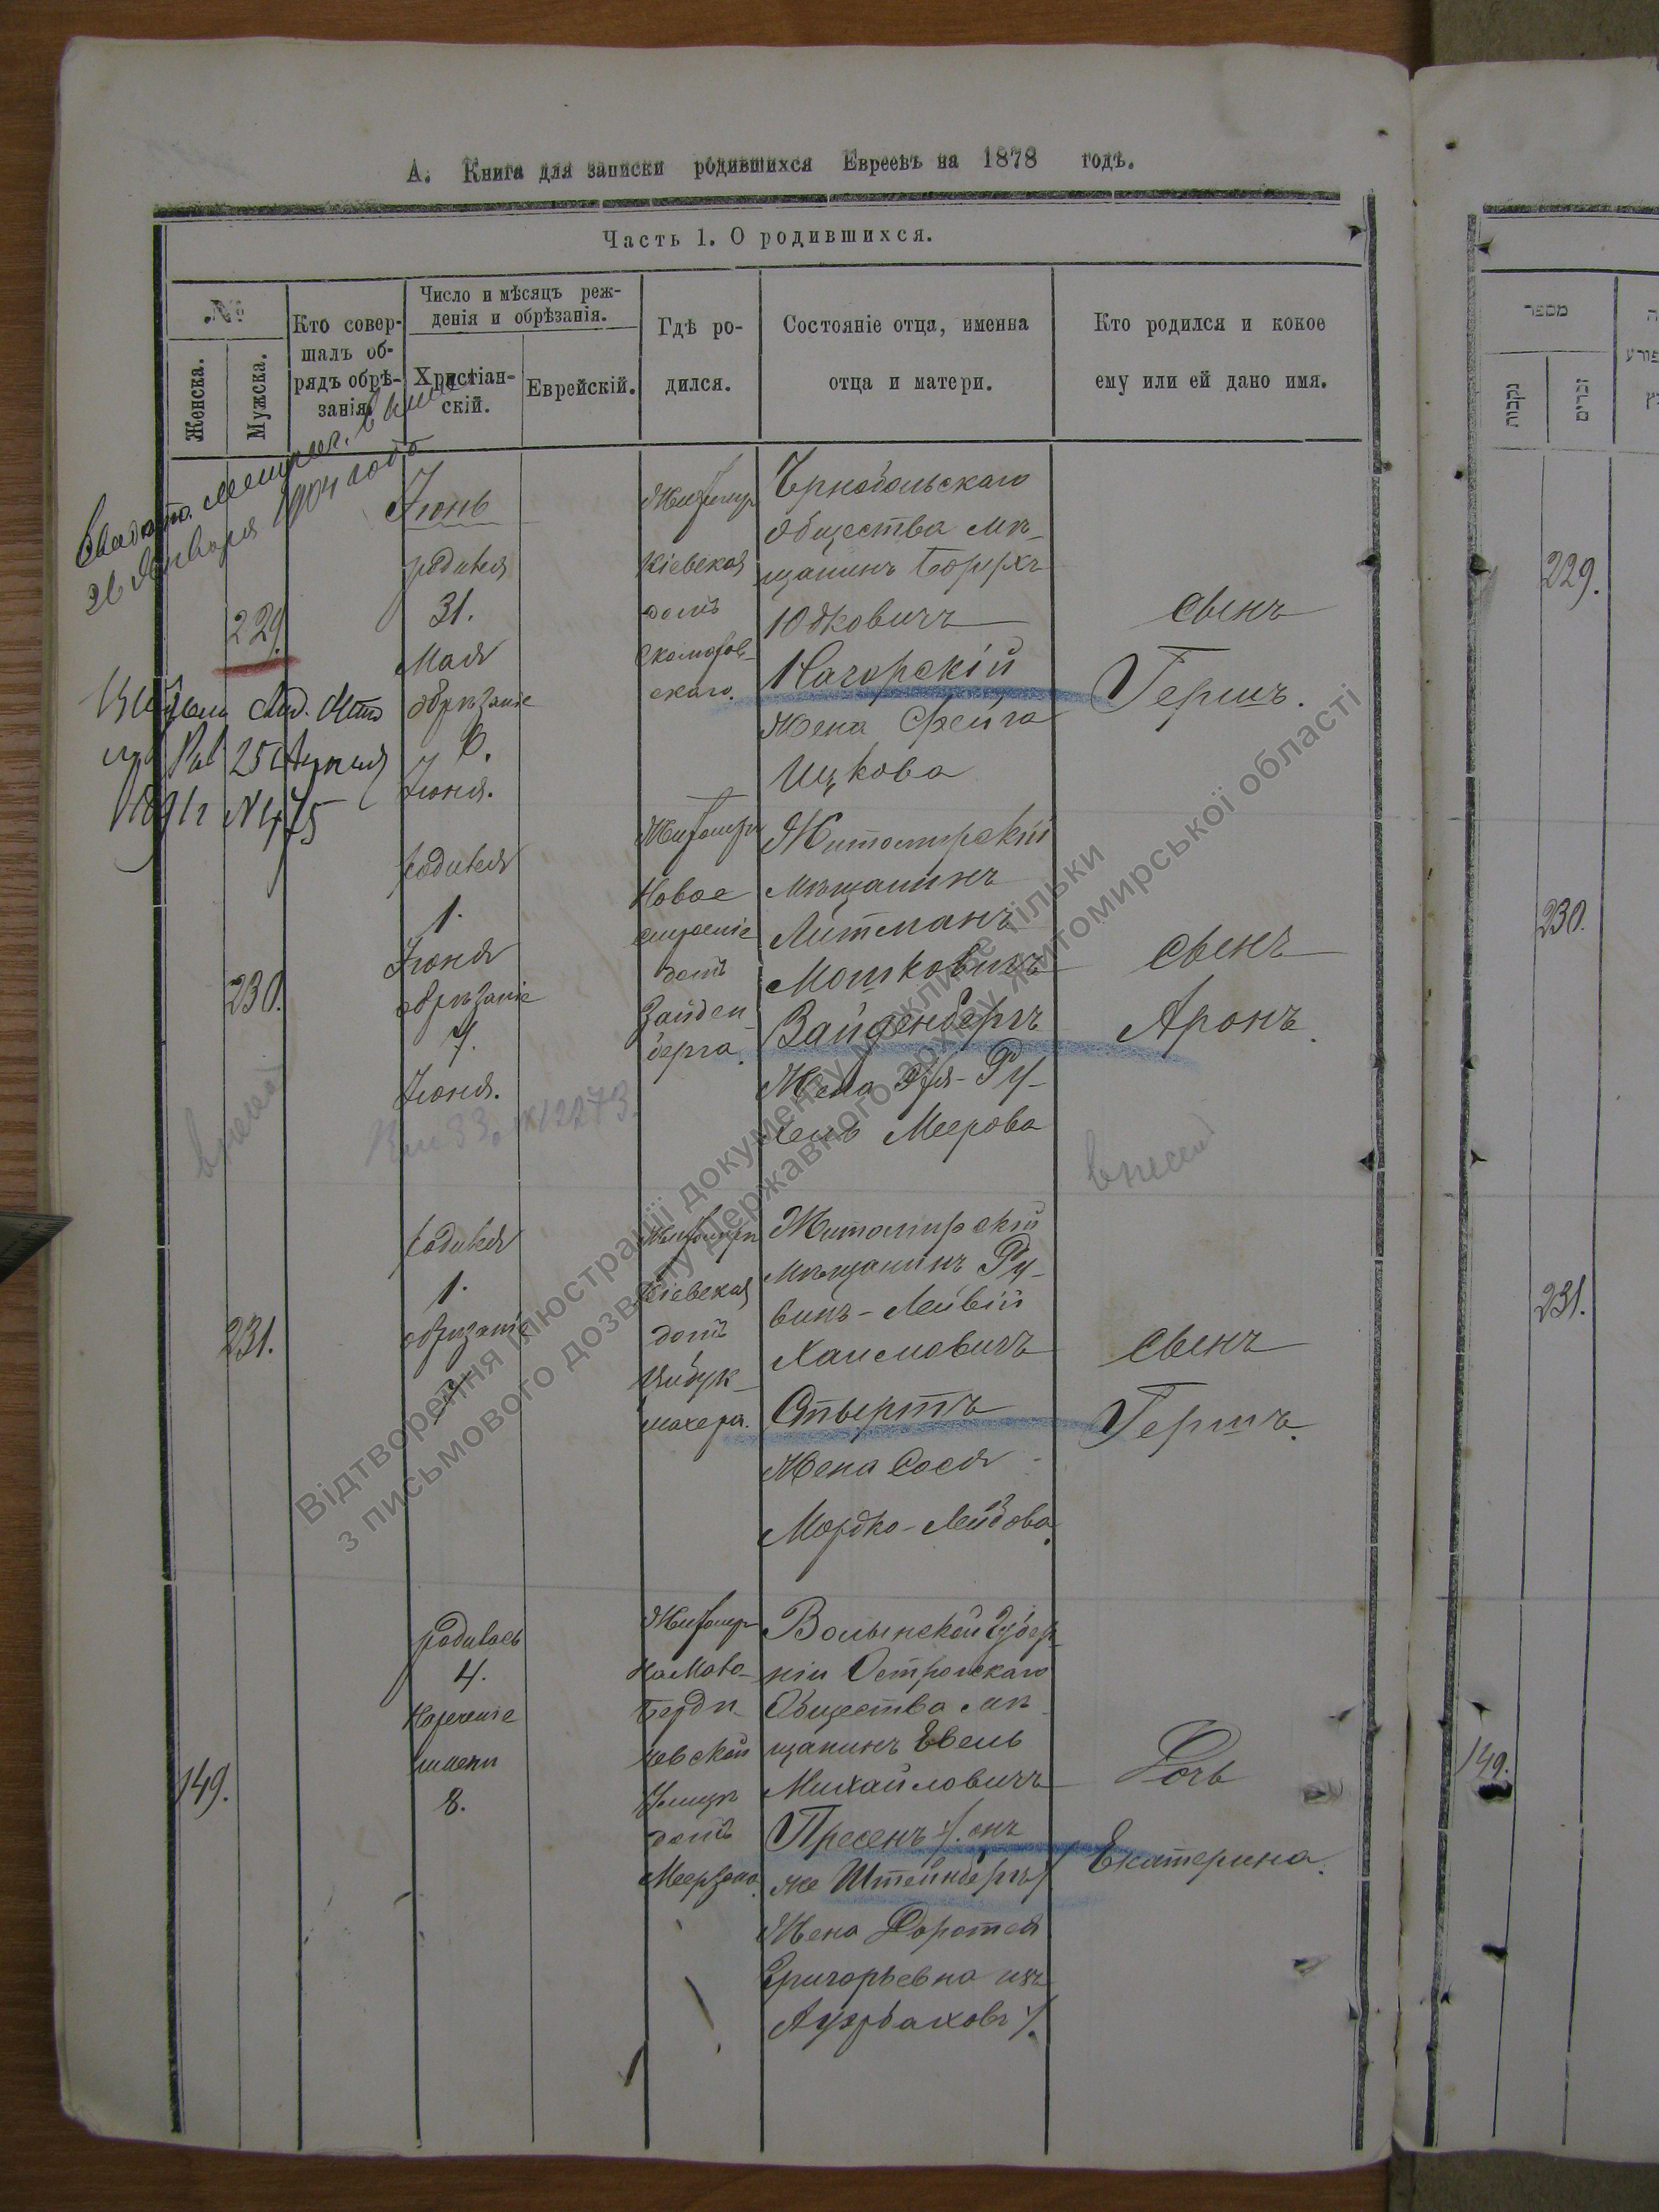 А. Книга для записки родившихся Евреевъ на 1878 годъ.
Часть 1. О родившихся.
№
Женска.
Мужска.
Кто совер-
шалъ об-
рядъ обрѣ-
занія.
Число и мѣсяцъ реж-
денія и обрѣзанія.
Христіан-
скій.
Еврейскій.
Гдѣ ро-
дился.
Состояніе отца, именна
отца и матери.
Кто родился и кокое
ему или ей дано имя.
26 Января 1904 года
229.
Іюнь
родился
31.
Мая
обрѣзаніе
6.
Іюня.
Житомиръ
Кіевская
домъ
Скоморов-
скаго.
Чернобыльскаго
Общества мѣ-
щанинъ Борухъ
Юдковичъ
Нагорскій
Жена Фейга
Ицкова
сынъ
Гершъ.
230.
родился
1.
Іюня
обрѣзаніе
7.
Іюня.
Новое
строеніе
домъ
Зайден-
берга
Житомирскій
Мѣщанинъ
Литманъ
Мошковичъ
Вайденбергъ
Жена Эйя-Ру-
хель Меерова
сынъ
Аронъ.
внесен
внесен
231.
родился
1.
обрѣзаніе
7
Житомиръ
Кіевская
домъ
Цибук-
махера.
Житомирскій
Мѣщанинъ Ру-
винъ-Лейвій
Хаимовичъ
Стыртъ
Жена Сося
Мордко-Лейбова.
сынъ
Гершъ.
149.
родилась
4.
Нареченіе
имени
8.
Житомиръ
На Мало-
Берди-
чевской
Улицѣ
домъ
Меерзона.
Волынской Губер-
ніи Острогскаго
Общества мѣ-
щанинъ Евель
Михайловичъ
Пресенъ /: онъ
же Штейнбергъ/
Жена Доротея
Григорьевна изъ
Ауэрбаховъ /.
Дочь
Екатерина.
מספר
נקבות
זכרים
229.
230.
231.
149.
Відтворення ілюстрації документу можливе тільки
з письмового дозволу Державного архіву Житомирської області